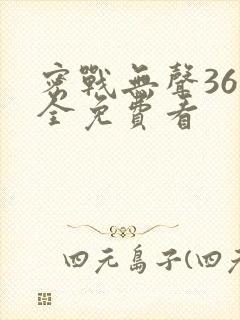 密戰無聲36
全免費看
四元島子(四元